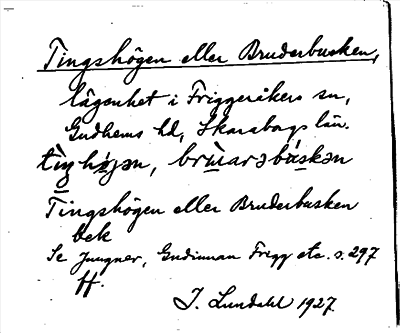 Tingshögen eller Bruderbusken,
lägenhet i Friggeråkers sn,
Gudhems hd, Skarabogs län.
tìŋhö̀jən, brùdarəbàskən
Tingshögen eller Bruderbusken
bek
Se Jungner, Gudinnan Frigg etc. s. 297
ff.
I. Lundahl 1927.